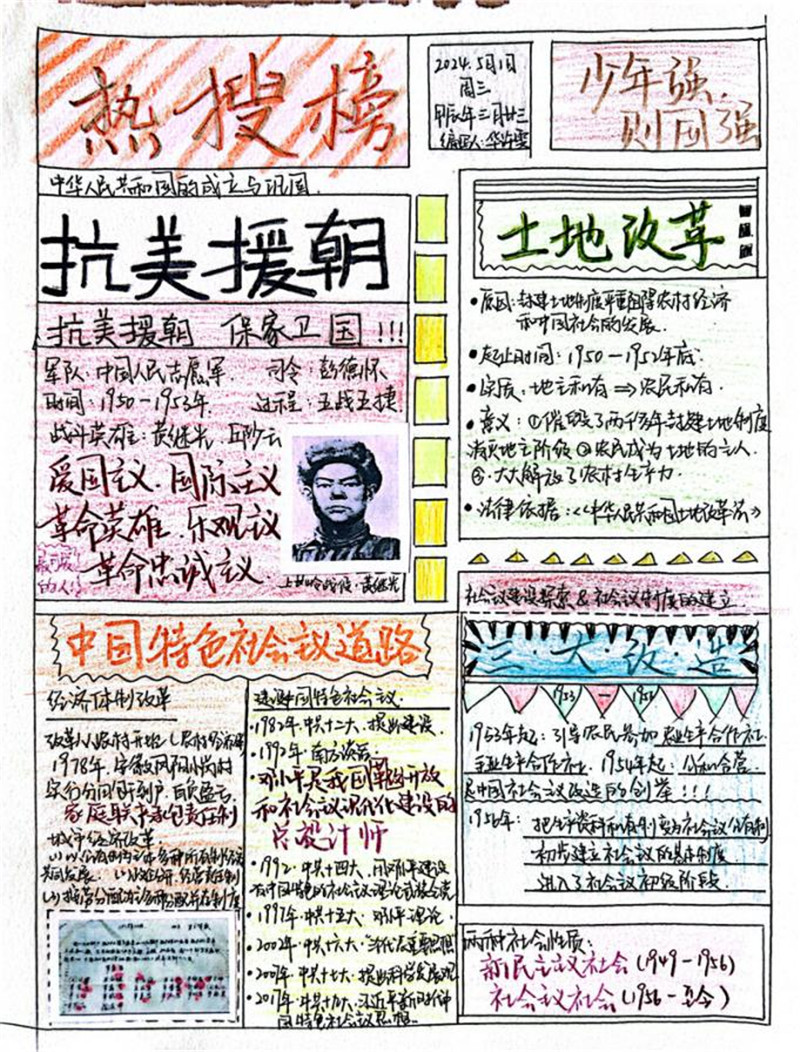 热搜榜
2024.5月1日
周三
甲辰年三月廿三
少年强,
则国强
中华人民共和国的成立与巩固.
抗美援朝
抗美援朝 保家卫国!!!
军队:中国人民志愿军. 司令:彭德怀
时间:1950-1953年. 过程:五战五捷.
战斗英雄:黄继光 邱少云
爱国主义.国际主义
革命英雄.乐观主义
最可爱
的人!
革命忠诚主义.
上甘岭战役·黄继光
土地改革
•原因:封建土地制度严重阻碍农村经济
和中国社会的发展.
•起止时间:1950-1952年底.
•实质:地主私有⇒农民私有.
•意义:①摧毁了两千多年封建土地制度
消灭地主阶级②农民成为土地的主人.
③.大大解放了农村生产力.
•法律依据:《中华人民共和国土地改革法》
社会主义建设探索&社会主义制度的建立
三·大·改·造
1953 一 1956
1953年起:引导农民参加农业生产合作社.
手工业生产合作社. 1954年起:公私合营.
是中国社会主义改造的创举!!!
1956年: 把生产资料私有制变为社会主义公有制
初步建立社会主义的基本制度.
进入了社会主义初级阶段.
两种社会性质:
新民主主义社会(1949-1956)
社会主义社会(1956-至今)
中国特色社会主义道路
经济体制改革
改革从农村开始
1978年.安徽凤阳小岗村
实行分田包产到户,自负盈亏.
家庭联产承包责任制
城市经济改革.
建设中国特色社会主义.
•1982年.中共十二大.提出建设.
•1992年.南方谈话.
•邓小平是我国改革开放
和社会主义现代化建设的
总设计师
•1992.中共十四大.
•1997年.中共十五大.邓小平理论.
•2002年.中共十六大."三个代表"重要思想
•2007年.中共十七大.提出科学发展观
•2017年.中共十九大.习近平新时代中
国特色社会主义思想.